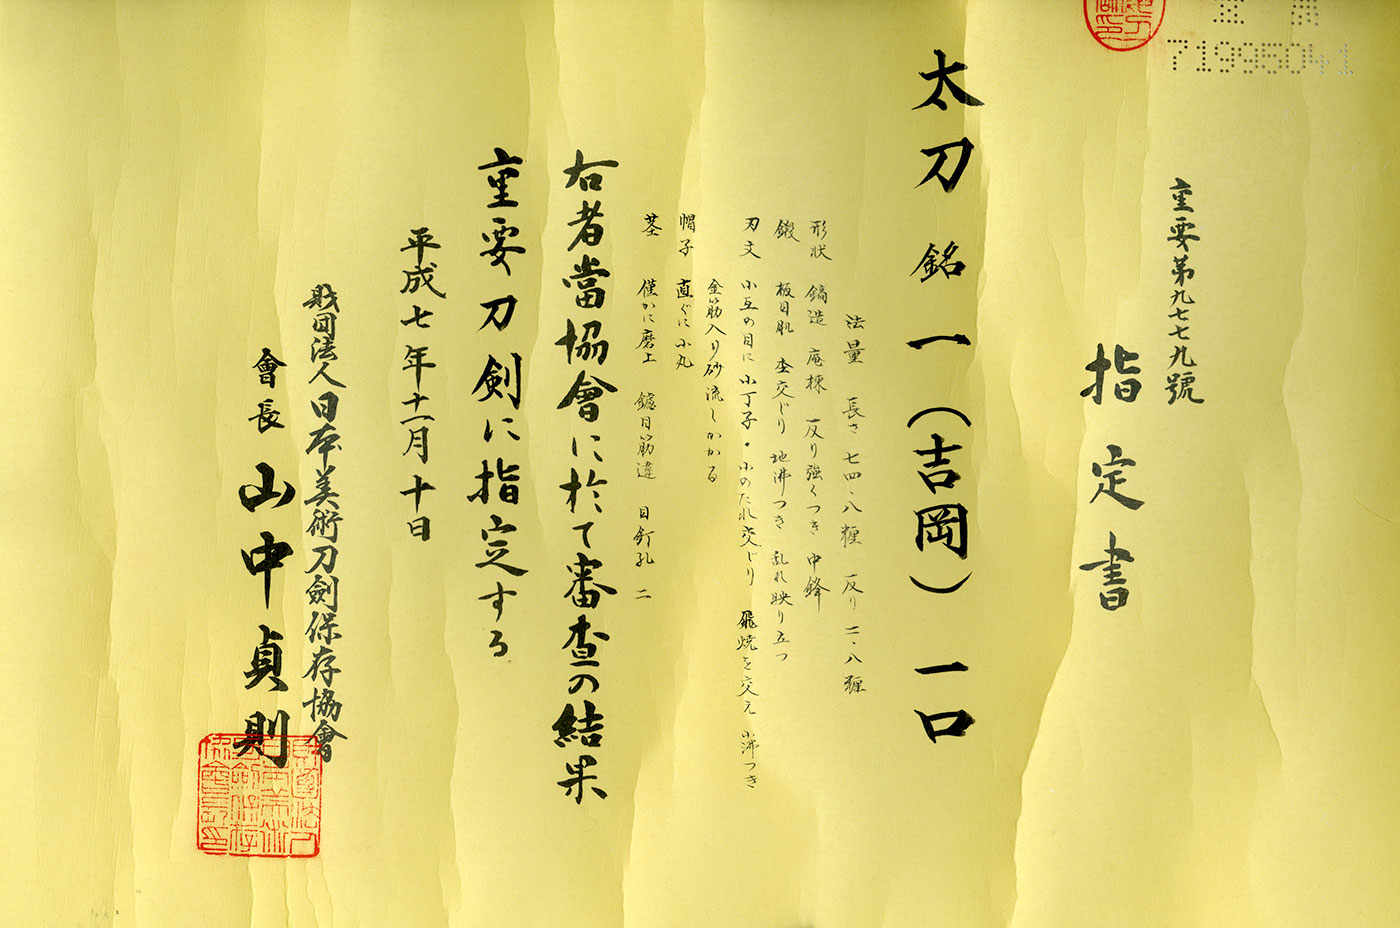 71995041
重要第九七七九號
指定書
太刀 銘 一(吉岡) 一口
法量 長さ 七四・八糎 反り 二・八糎
形状 鎬造 庵棟 反り強くつき 中鋒
鍛 板目肌 杢交じり 地沸つき 乱れ映り立つ
刃文 小互の目に小丁子・小のたれ交じり 飛焼を交え 小沸つき
金筋入り砂流しかかる
帽子 直ぐに小丸
茎 僅かに磨上 鑢目筋違 目釘孔 二
右者當協會に於て審査の結果
重要刀剣に指定する
平成七年十一月十日
財団法人日本美術刀劍保存協會
會長 山中貞則